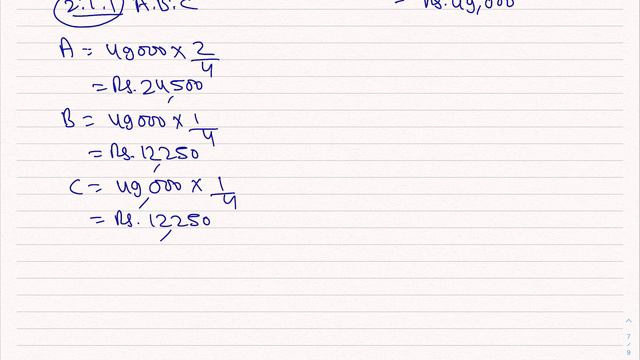 2:1:1 A.B.C = Rs. 49,000
A = 49000 × 2/4
= Rs. 24,500
B = 49000 × 1/4
= Rs. 12,250
C = 49,000 × 1/4
= Rs. 12,250
7/9